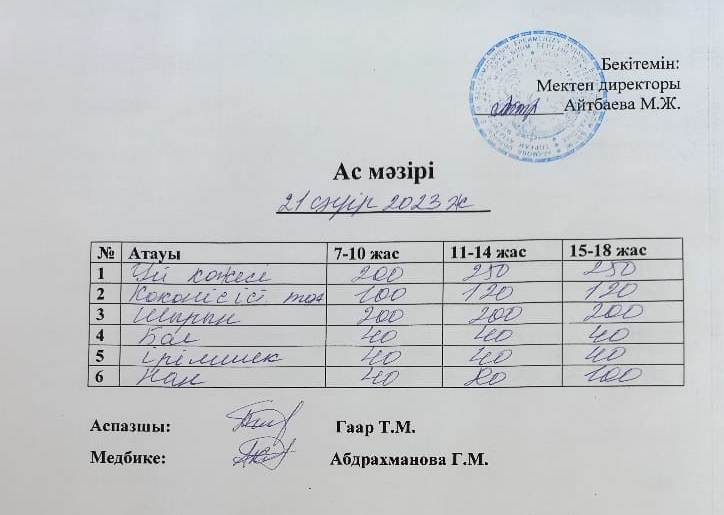 Бекітемін:
Мектеп директоры
Айтбаева М.Ж.
Ас мәзірі
21 сәуір 2023 ж
№ Атауы 7-10 жас 11-14 жас 15-18 жас
1 Үй көжесі 200 250 250
2 100 120 120
3 Шырын 200 200 200
4 Бал 40 40 40
5 Ірімшек 40 40 40
6 Нан 40 80 100
Аспазшы: Гаар Т.М.
Медбике: Абдрахманова Г.М.